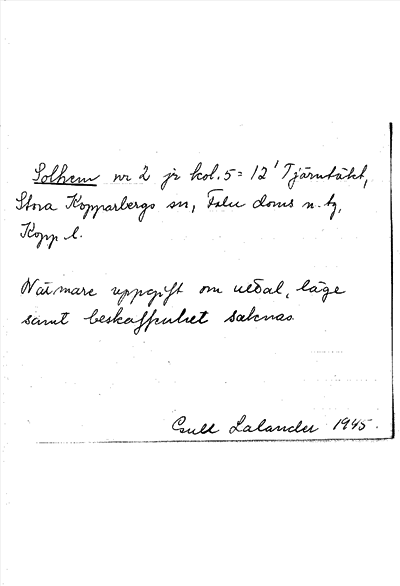 Solhem nr 2 jr kol. 5 = 12' Tjärntäkt,
Stora Kopparbergs sn, Falu doms n. tg,
Kopp l.
Närmare uppgift om uttal, läge
samt beskaffenhet saknas
Lalander 1945.